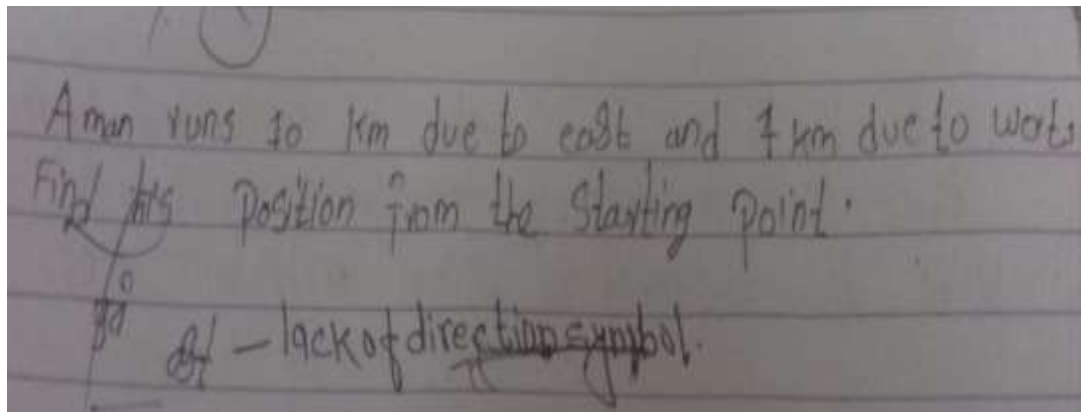 A man runs 10 km due to east and 7 km due to
Find his position from the starting point.
- lack of direction symbol.